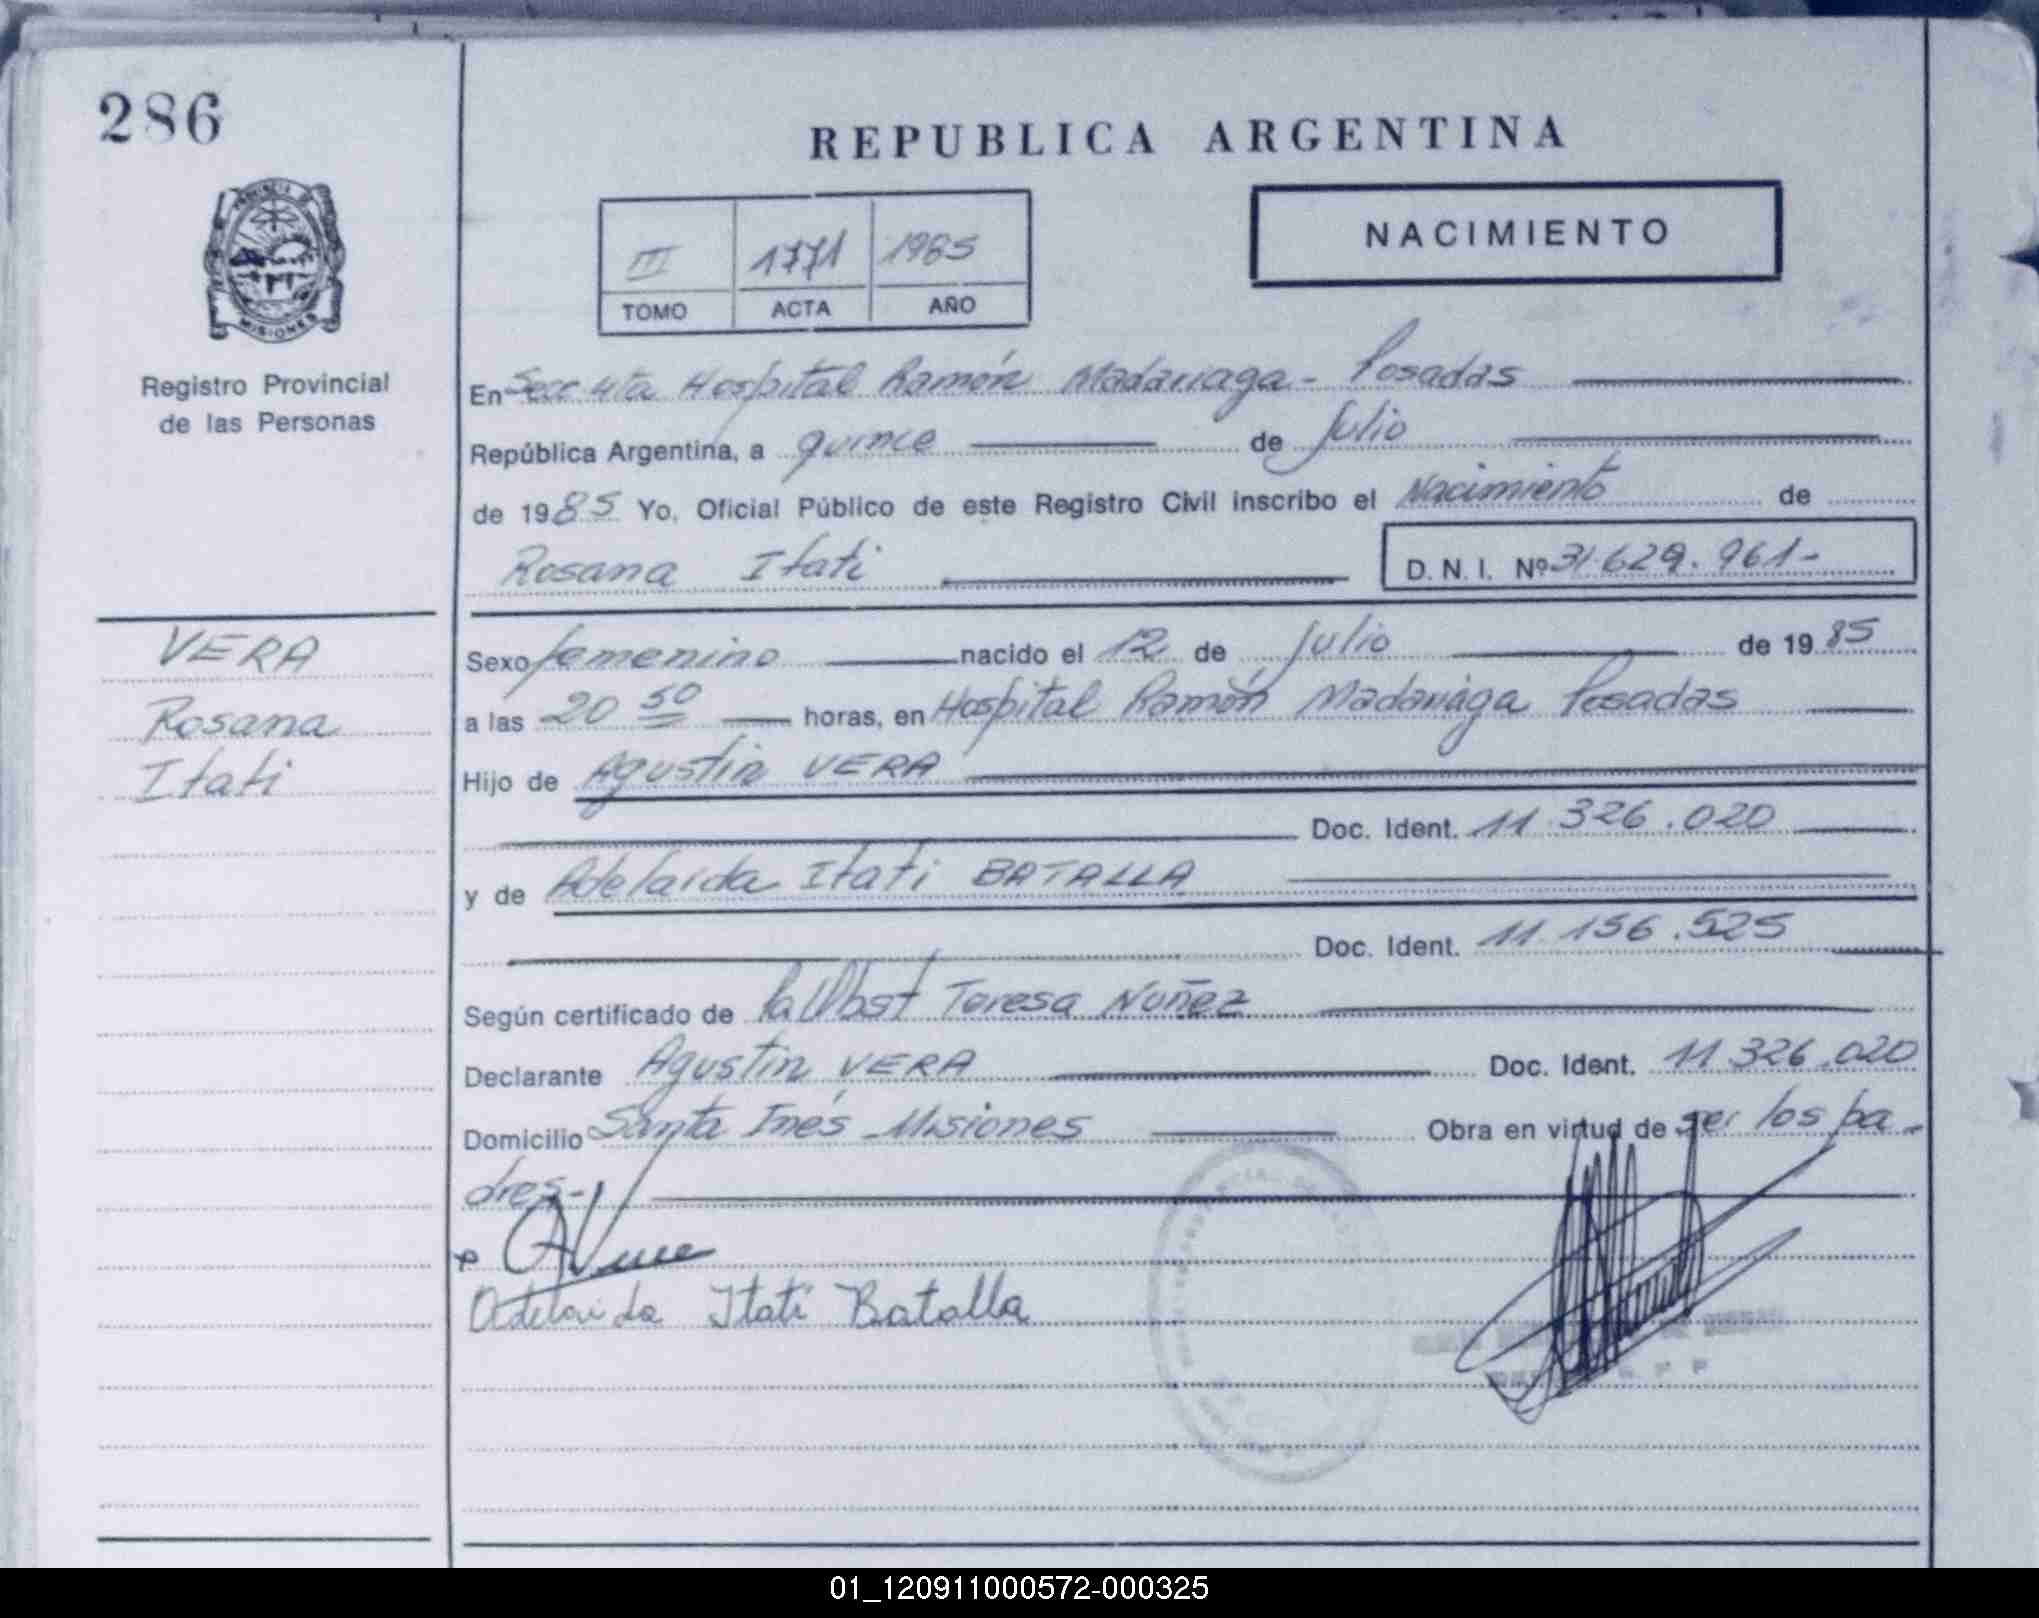 286
REPUBLICA ARGENTINA
PROVINCIA DE
MISIONES
NACIMIENTO
III 1771 1985
TOMO ACTA AÑO
Registro Provincial
de las Personas
En Secc 4ta Hospital Ramón Madariaga - Posadas
República Argentina, a quince de Julio
de 1985 Yo, Oficial Público de este Registro Civil inscribo el Nacimiento de
Rosana Itati D. N. I. Nº 31.629.961-
VERA
Rosana
Itati
Sexo femenino nacido el 12 de Julio de 1985
a las 20 50 horas, en Hospital Ramón Madariaga Posadas
Hijo de Agustin VERA
Doc. Ident. 11.326.020
y de Adelaida Itati BATALLA
Doc. Ident. 11.156.525
Según certificado de la Obst Teresa Nuñez
Declarante Agustin VERA Doc. Ident. 11.326.020
Domicilio Santa Inés - Misiones Obra en virtud de ser los pa-
dres-
Adelaida Itati Batalla
01_120911000572-000325